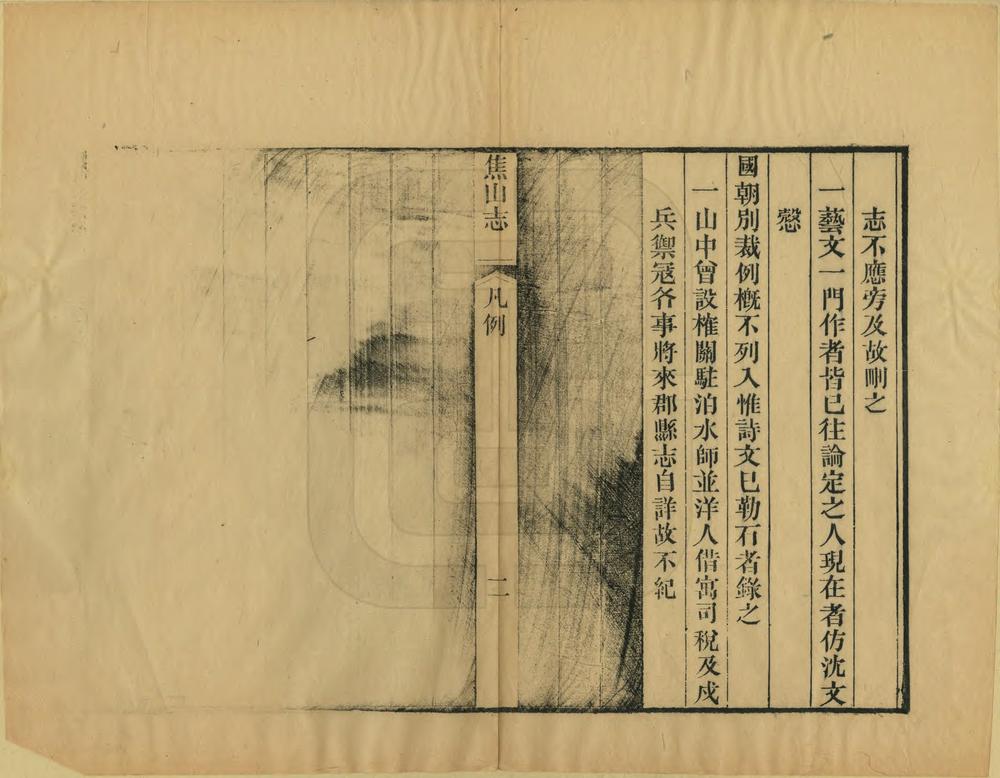 志不應旁及故刪之
一藝文一門作者皆已往論定之人現在者仿沈文
慤
國朝別裁例槪不列入惟詩文已勒石者錄之
一山中曾設榷關駐泊水師並洋人借寓司稅及戍
兵禦寇各事將來郡縣志自詳故不紀
焦山志
凡例
二